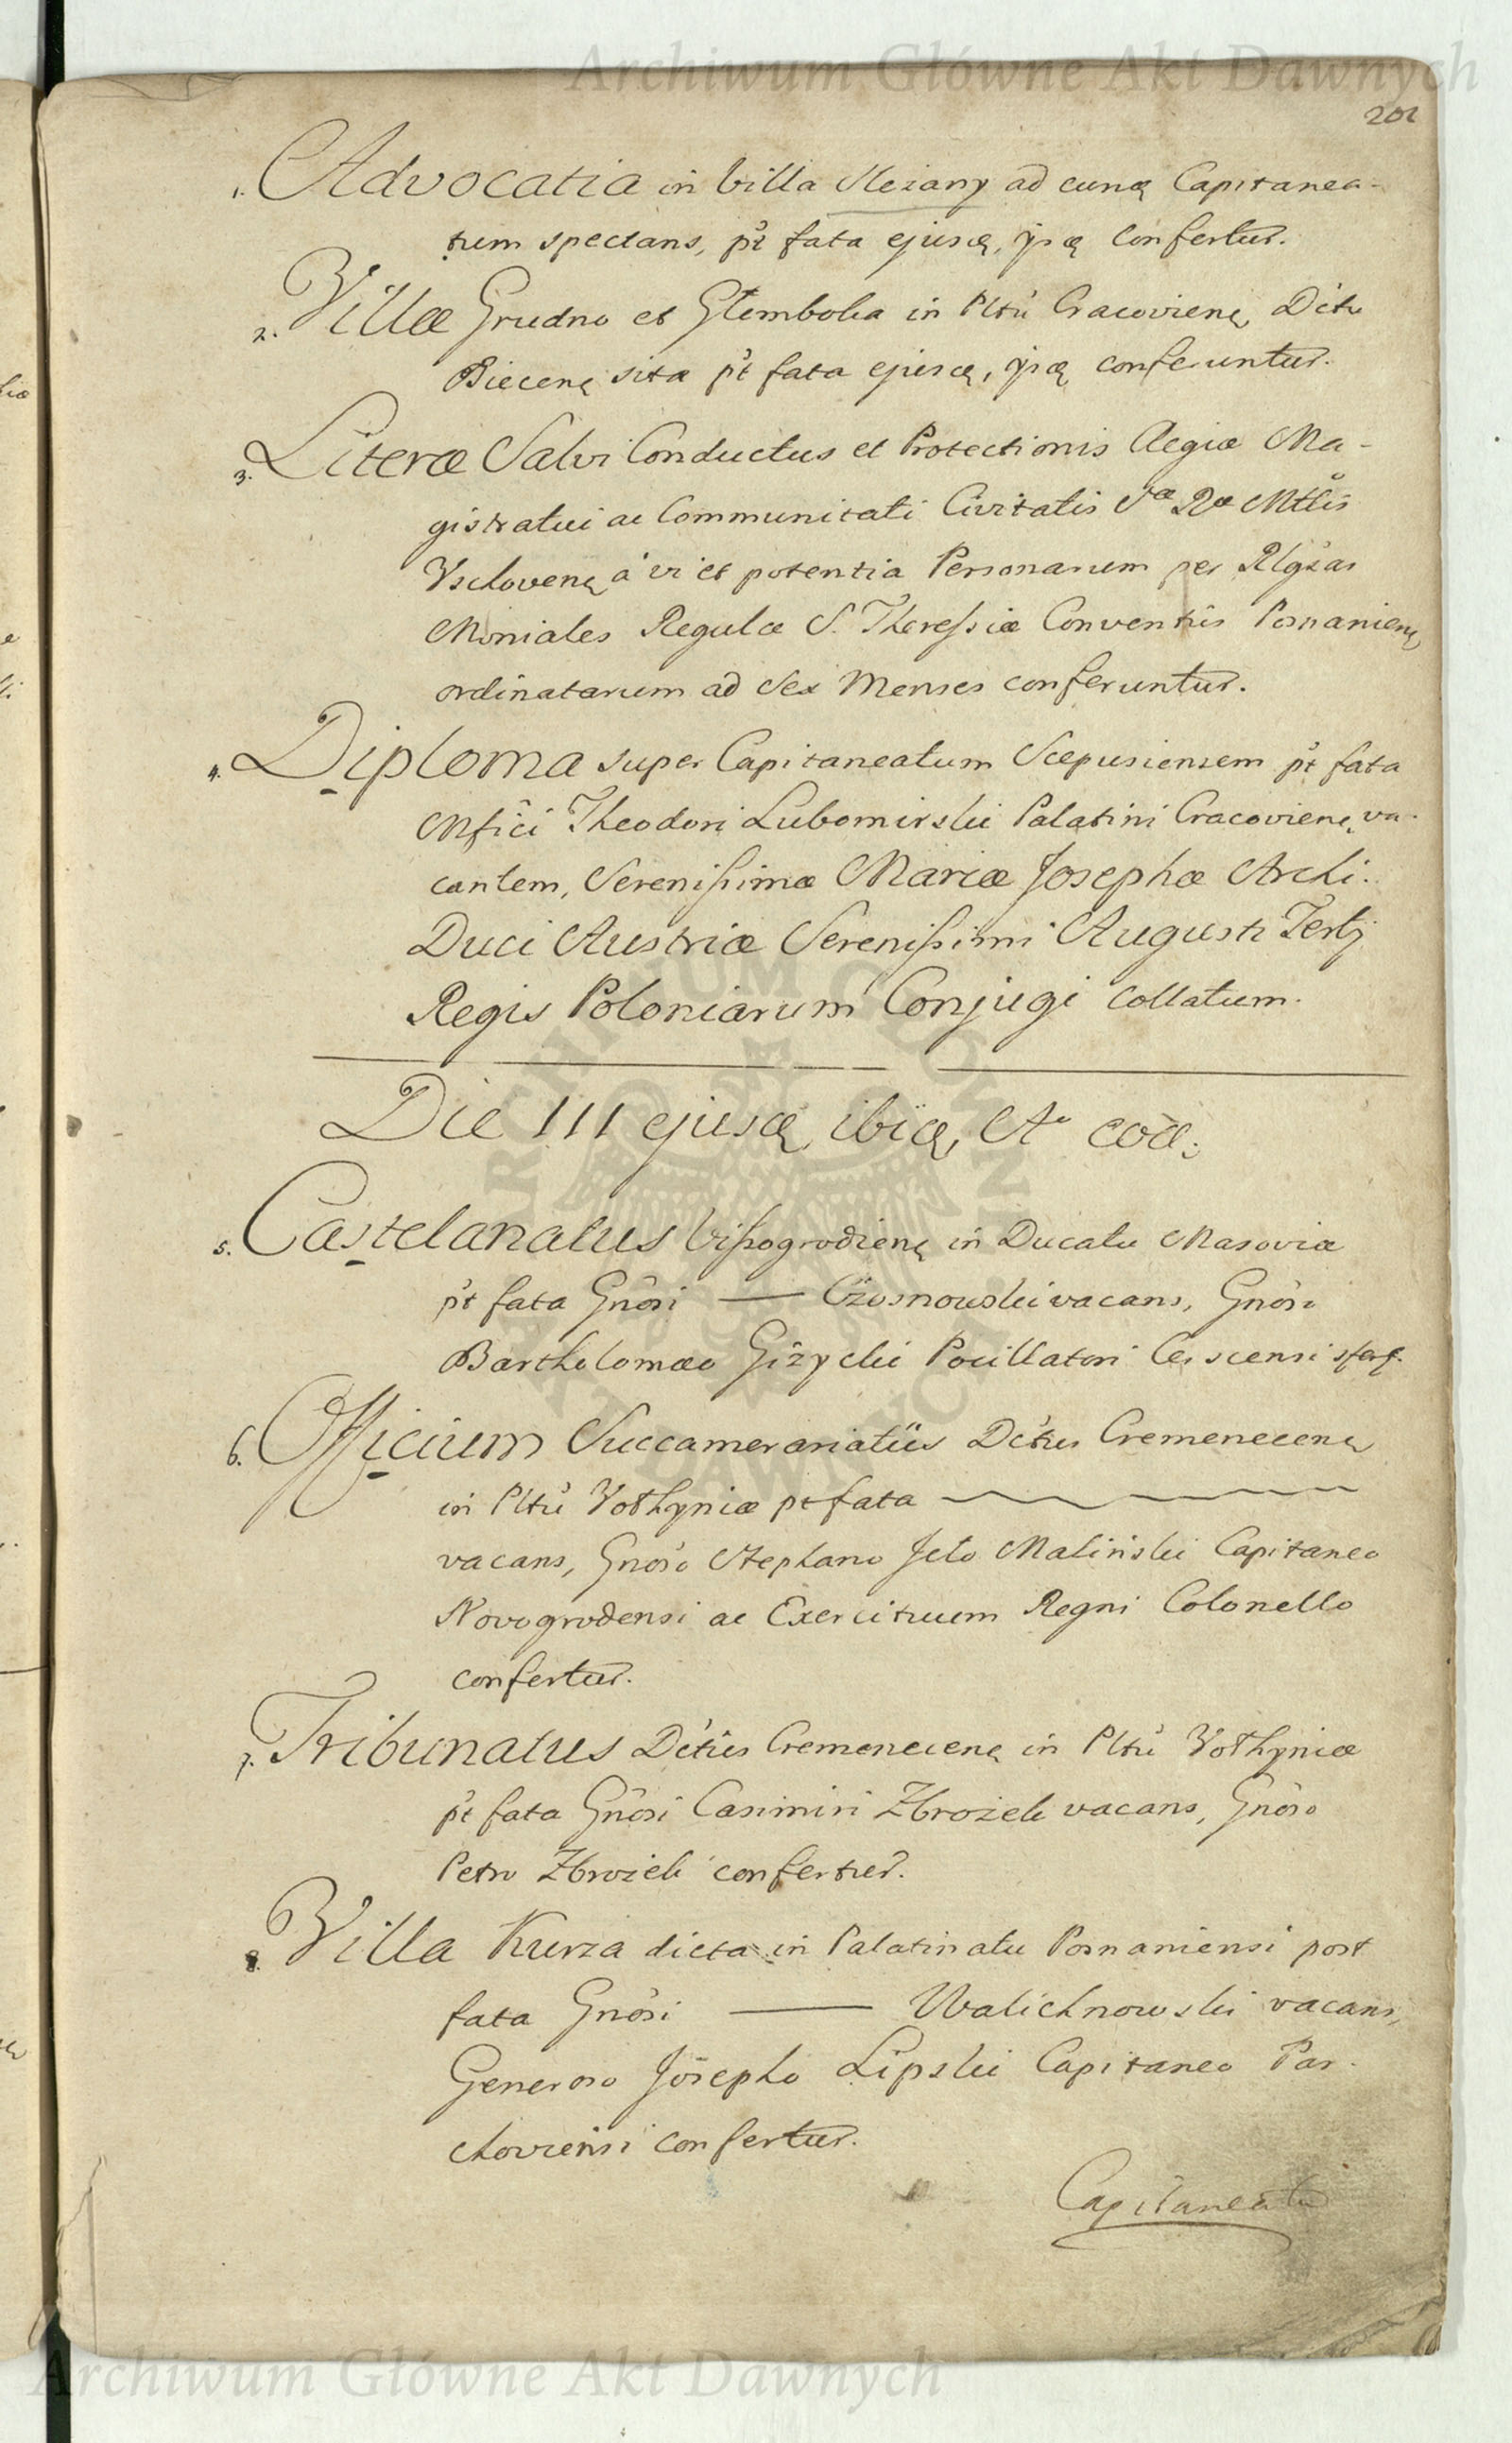 Archiwum Główne Akt Dawnych
201
1. Advocatia in Villa Sleżany ad eunđ Capitanea-
tum spectans, pt fata ejusđ, ipsđ confertur.
2. Villæ Grudno et Glemboka in Pltu Cracovienę Dctu
Biecenę sitæ pt fata ejusđ, ipsđ conferuntur.
3. Literæ Salvi Conductus et Protectionis Regiæ Ma-
gistratui ac Communitati Civitatis Sæ Ræ Mttis
Vschovenę à vi et potentia Personarum per Rlgsas
Moniales Regulæ S. Theressiæ Conventûs Posnanienę
ordinatarum ad Sex Menses conferuntur.
4. Diploma super Capitaneatum Scepusiensem pt fata
Mfici Theodori Lubomirski Palatini Cracovienę va-
cantem, Serenissimæ Mariæ Josephæ Archi-
Duci Austriæ Serenissimi Augusti Tertj
Regis Poloniarum Conjugi collatum.
Die III ejusđ, ibiđ, Ao eod:
5. Castelanatus Vissogrodienę in Ducatu Masoviæ
pt fata Gnosi — Czosnowski vacans, Gnoso
Bartholomæo Giżycki Pocillatori
6. Officium Succamerariatûs Dctus Cremenecenę
in Pltu Vołhyniæ pt fata
vacans, Gnoso Stephano Jelo Maliński Capitaneo
Novogrodensi ac Exercituum Regni Colonello
confertur.
7. Tribunatus Dctus Cremenecenę in Pltu Vołhyniæ
pt fata Gnosi Casimiri Zbrożek vacans, Gnoso
Petro Zbrożek confertur.
8. Villa Kurza dicta in Palatinatu Posnaniensi post
fata Gnosi — Walichnowski vacans,
Generoso Josepho Lipski Capitaneo Par-
choviensi confertur.
Capitaneatu
Archiwum Główne Akt Dawnych